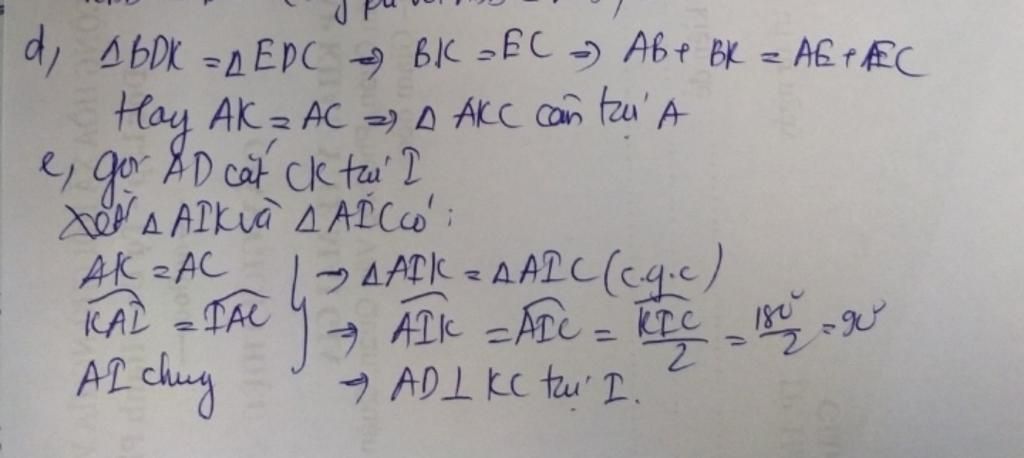 d, ΔBDK = ΔEDC => BK = EC => AB + BK = AE + EC
Hay AK = AC => Δ AKC cân tại A
e, gọi AD cắt CK tại I
Xét Δ AIK và Δ AIC có:
AK = AC → ΔAIK = ΔAIC (c.g.c)
KAI = IAC → AIK = AIC = KIC/2 = 180°/2 = 90°
AI chung → AD⊥KC tại I.